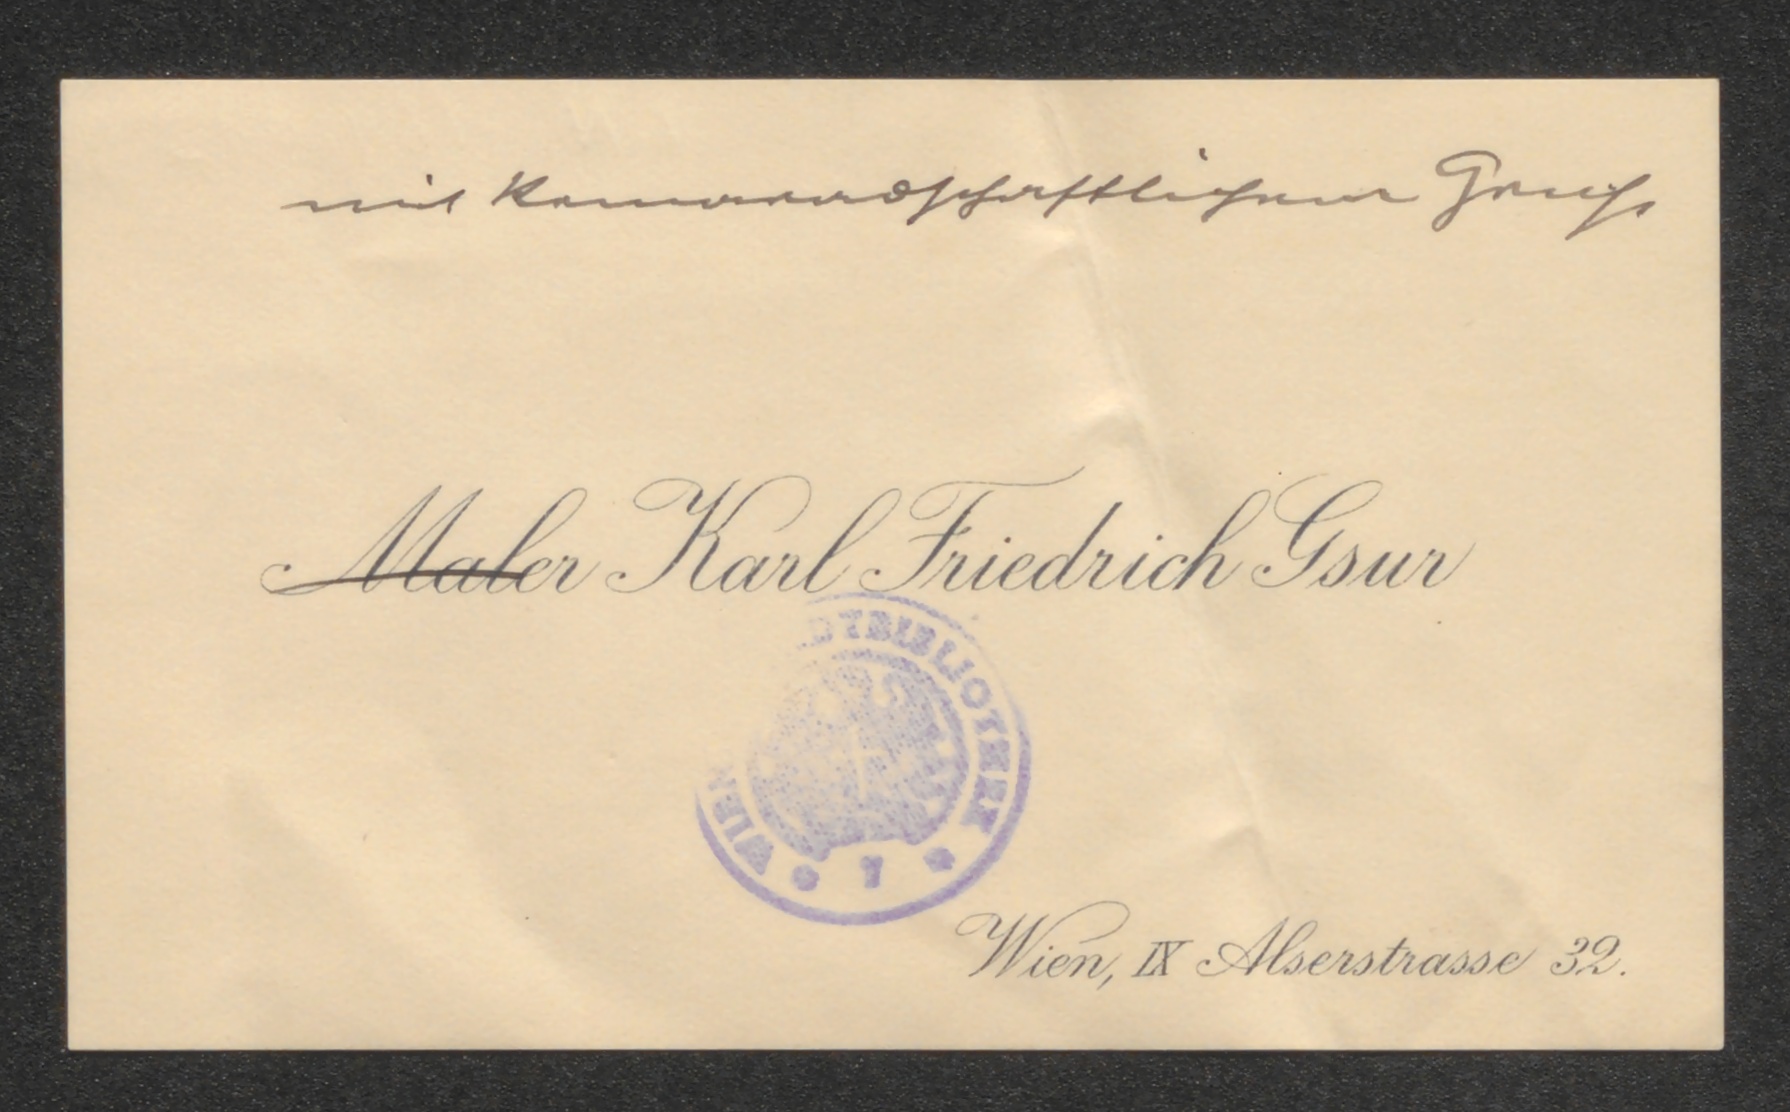 mit kameradschaftlichem Gruß
Maler Karl Friedrich Gsur
DTBIBLIOTHEK
WIEN
Wien, IX Alserstrasse 32.